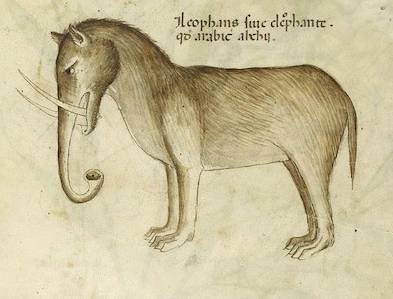 Ileophans siue elephante.
qd arabic alchij.